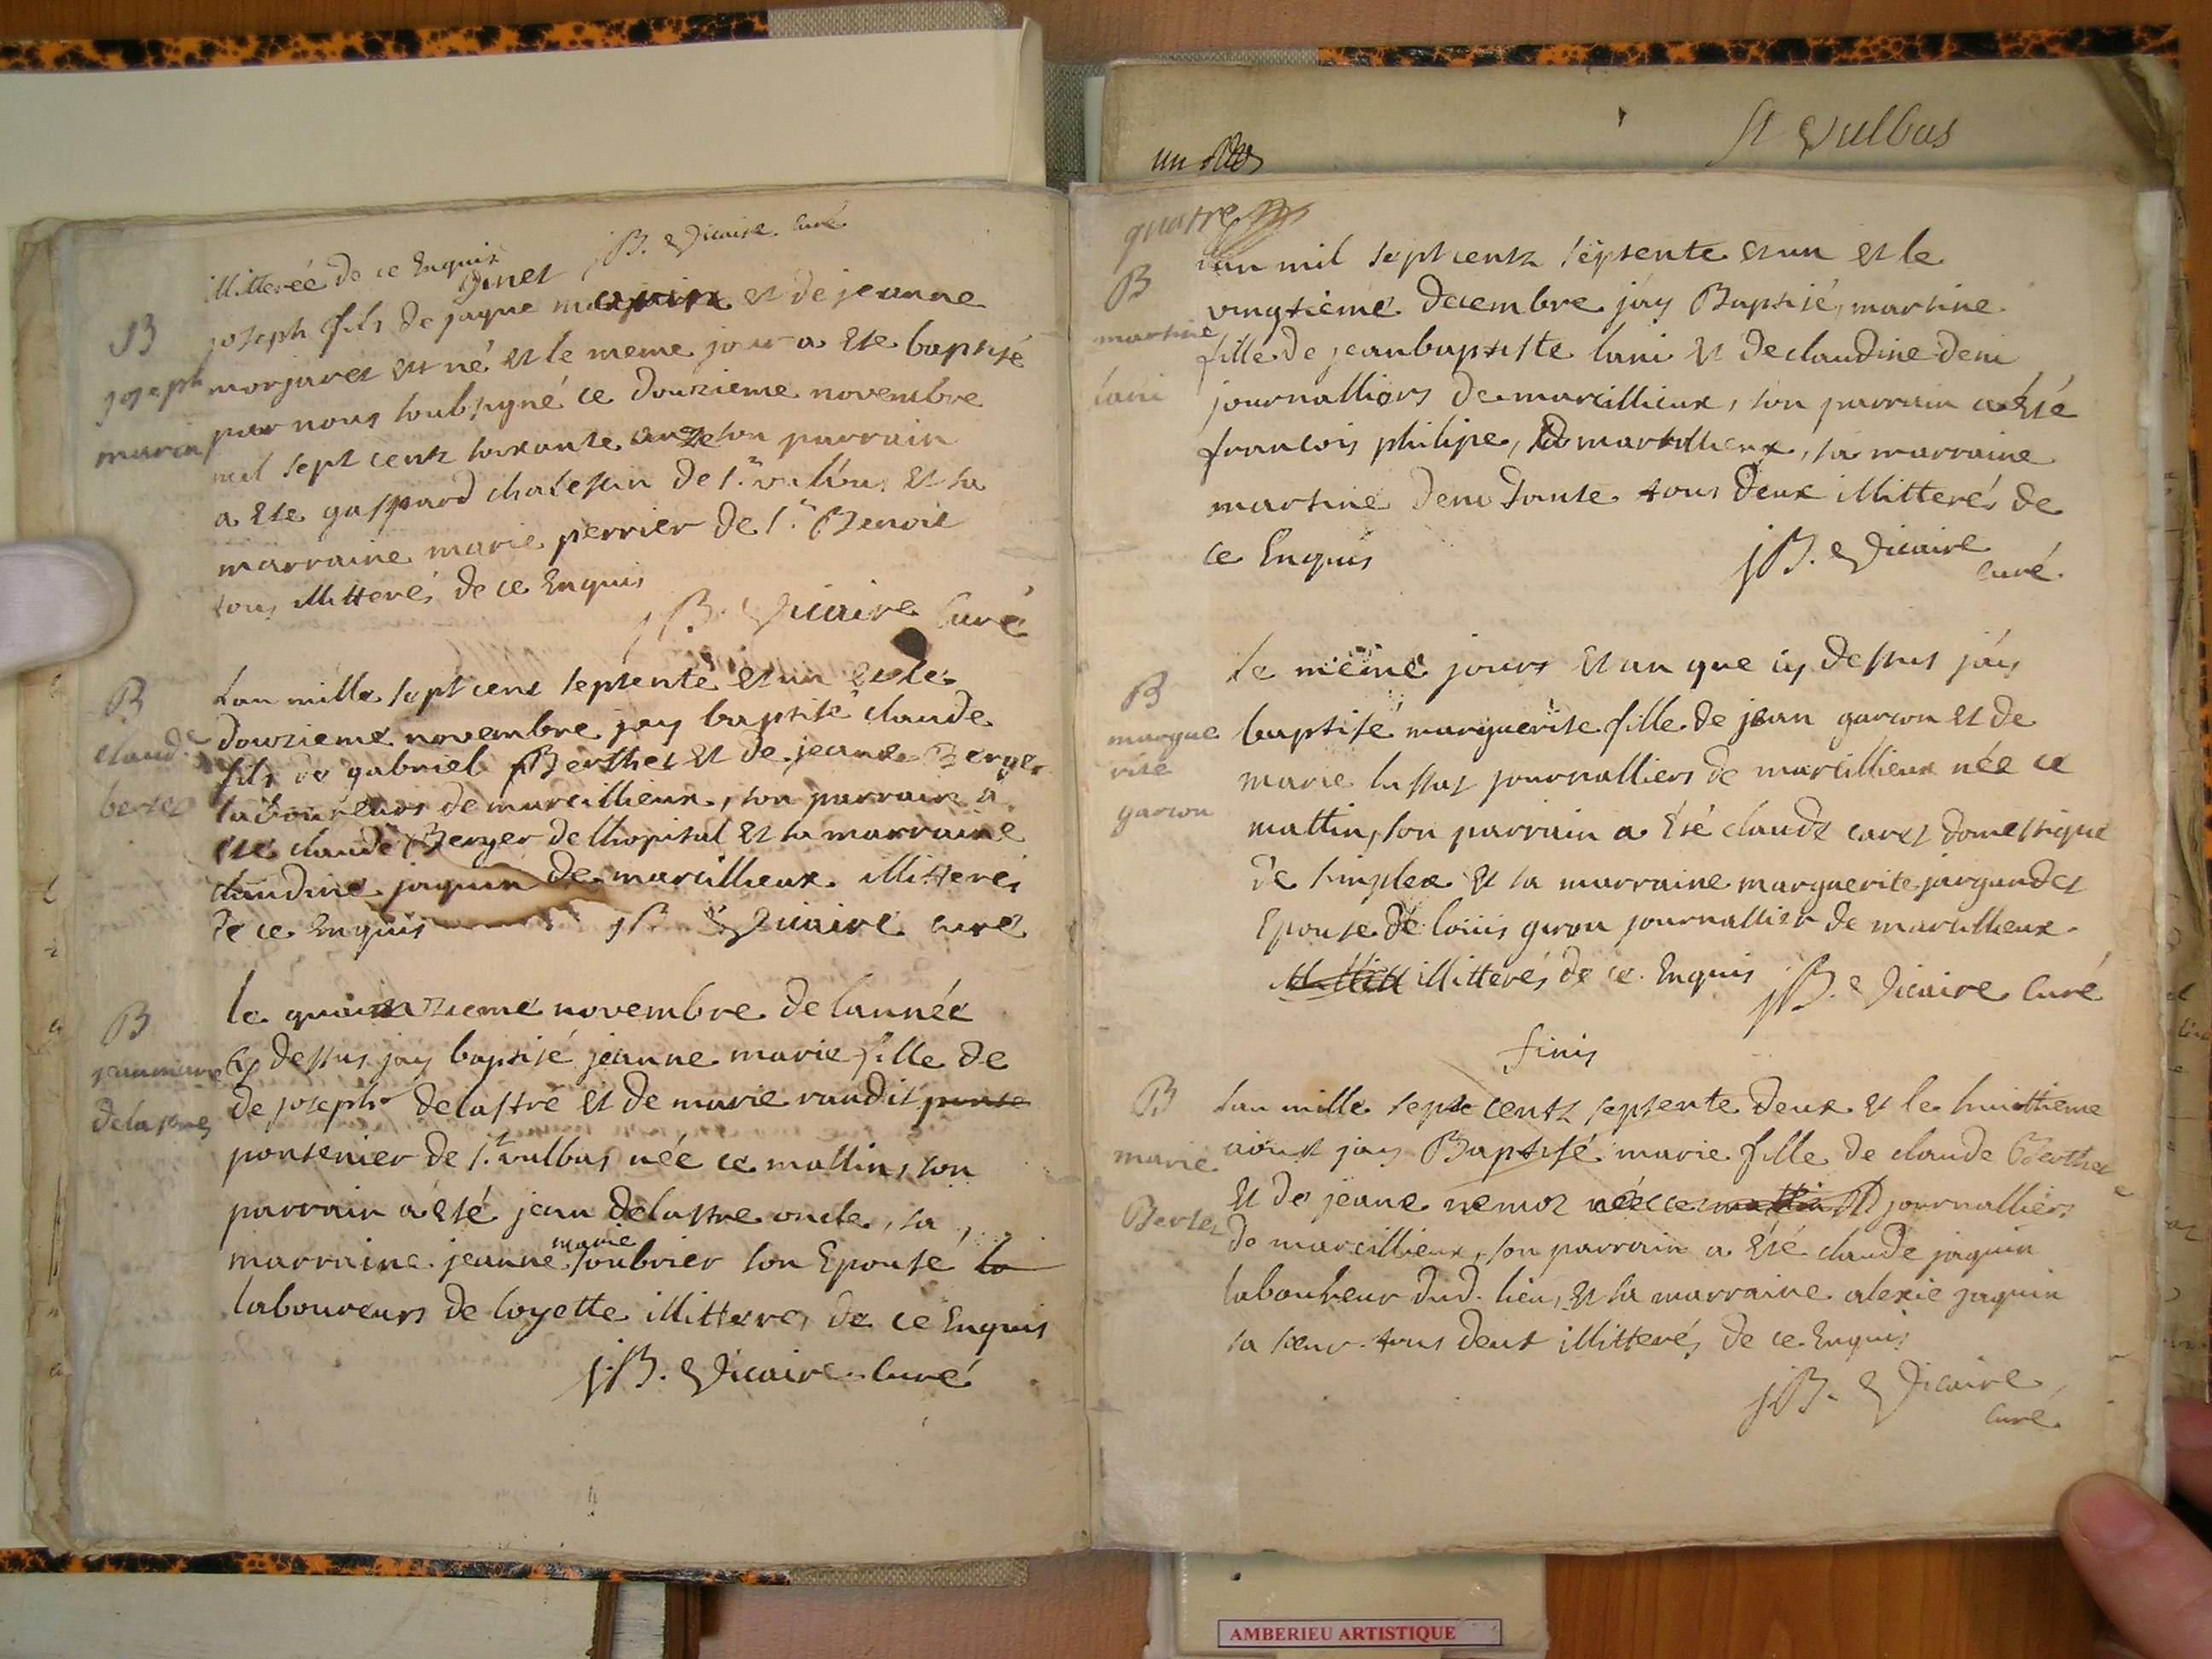 illitterée de ce Enquis J B. Vicaire. Curé
B
joseph
marin
joseph fils de jaque et de jeanne
morjaret est né et le meme jour a ete baptisé
par nous soubsigné ce douzieme novembre
mil sept centz soixante onze son parrain
a ete gaspard de st. vulbas et sa
marraine marie perrier de st. Benoit
tous illitterés de ce Enquis
J B. Vicaire Curé
B
claude
bertet
Lan mille sept cent septente et un et le
douzieme novembre jay baptisé claude
fils de gabriel Berthet et de jeane Berger
laboureurs de marcillieux, son parrain a
eté claude Berger de lhopital et sa marraine
claudine jaquin de marcillieux illitterés
de ce Enquis J B. Vicaire curé
B
jeanmarie
delastre
le quainzieme novembre de lannée
cy dessus jay baptisé jeanne marie fille de
de joseph delastre et de marie randit ponte
pontenier de st. vulbas née ce mattin, son
parrain a été jean delastre oncle, sa
marraine jeanne marie soubrier son Epouse la
laboureurs de loyette illitterés de ce Enquis
J B. Vicaire. Curé
St Vulbas
un
quatre
B
martine
lani
Lan mil sept centz septente et un et le
vingtieme decembre jay Baptisé, martine
fille de jeanbaptiste lani et de claudine deni
journalliers de marcillieux, son parrain a été
francois philipe, de marcillieux, sa marraine
martine deni tante tous deux illitterés de
ce Enquis J B. Vicaire
curé.
B
margue
rite
garcon
le même jours et an que cy dessus jay
baptisé marguerite fille de jean garcon et de
marie lassat journalliers de marcillieux née ce
mattin, son parrain a Eté claude caret domestique
de simplex et sa marraine marguerite jargundet
Epouse de louis giron journallier de marcillieux
illitterés de ce Enquis J B. Vicaire Curé
finis
B
marie
Bertet
Lan mille sept centz septente deux et le huitieme
aoust jay Baptisé marie fille de claude Berthet
et de jeane nemoz née ce mattin journalliers
de marcillieux, son parrain a Eté claude jaquin
laboureur dud. lieu, et sa marraine alexie jaquin
sa soeur tous deux illitterés de ce Enquis
J B. Vicaire
curé.
AMBERIEU ARTISTIQUE